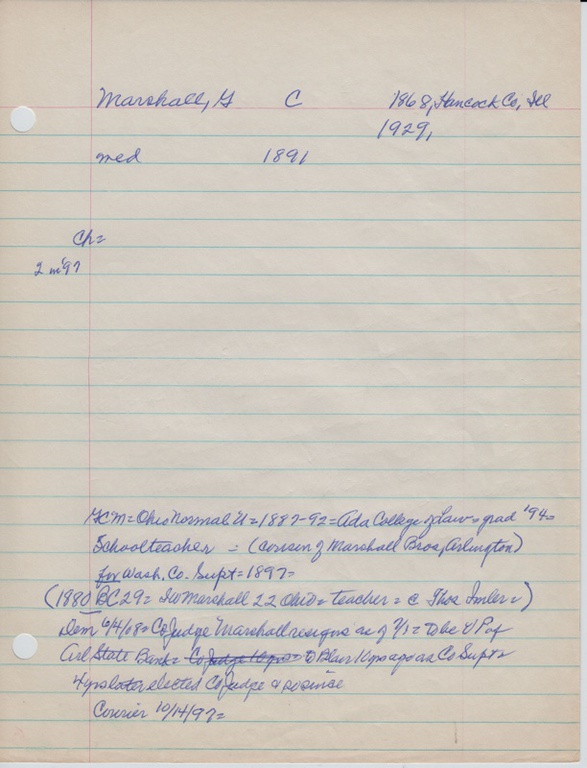 Marshall, G C 1868, Hancock Co, Ill
1929,
med 1891
Ch=
2 m '97
GCM = Ohio Normal U = 1887-92 = Ada College of Law = grad '94 =
Schoolteacher = (cousin of Marshall Bros, Arlington)
for Wash. Co. Supt = 1897 =
(1880 BC29 = Marshall 22 Ohio = teacher = c Thos Imler =)
Dem 6/4/08 = Co Judge Marshall resigns as of 7/1 = to be VP of
Arl State Bank = Co Judge 10 yrs = Blair 14 yrs ago as Co Supt =
4 yrs later elected Co Judge & so since
Courier 10/14/97 =